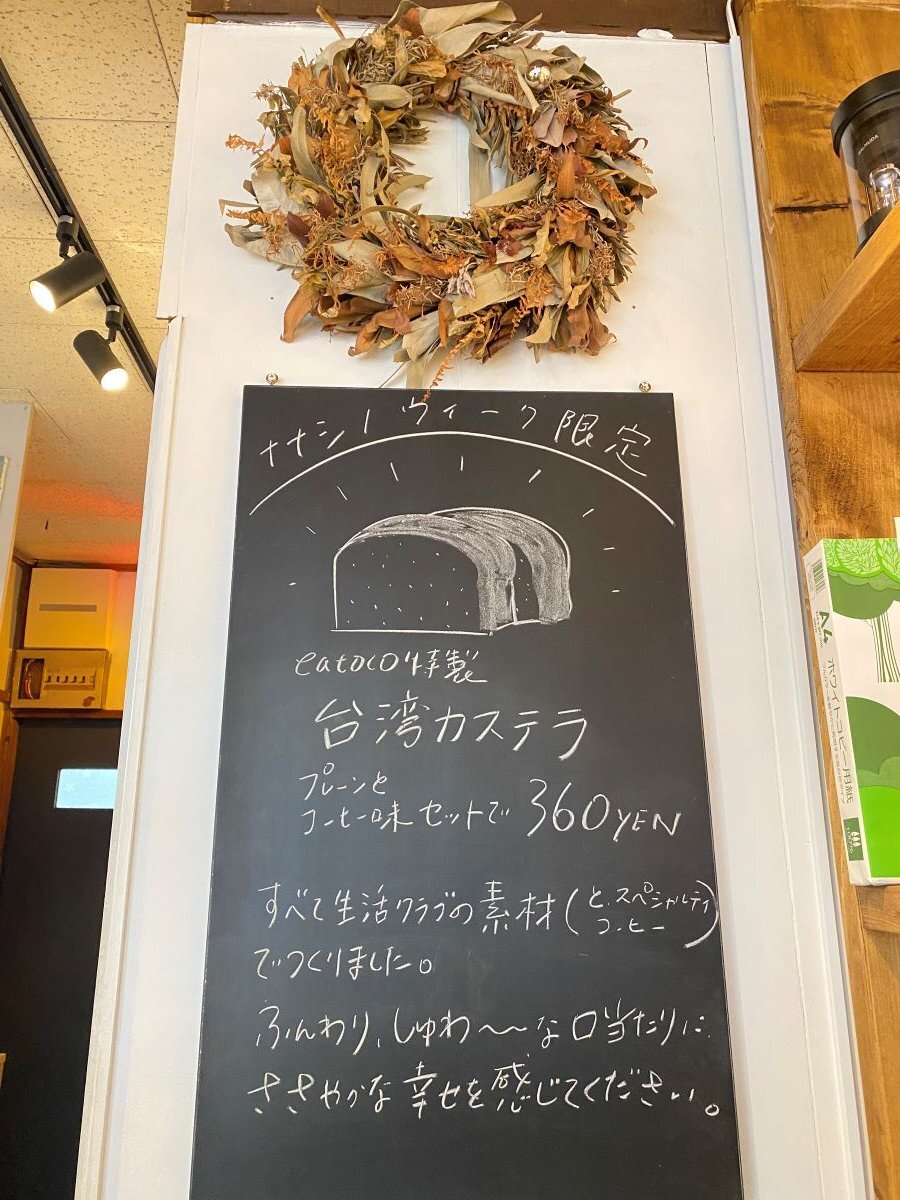 ナナシノウィーク限定
eatoco特製
台湾カステラ
プレーンと
コーヒー味セットで 360YEN
すべて生活クラブの素材(と、スペシャルティコーヒー)
でつくりました。
ふんわり、しゅわ〜〜な口当たりに
ささやかな幸せを感じてください。
A4
ホワイトコピー用紙